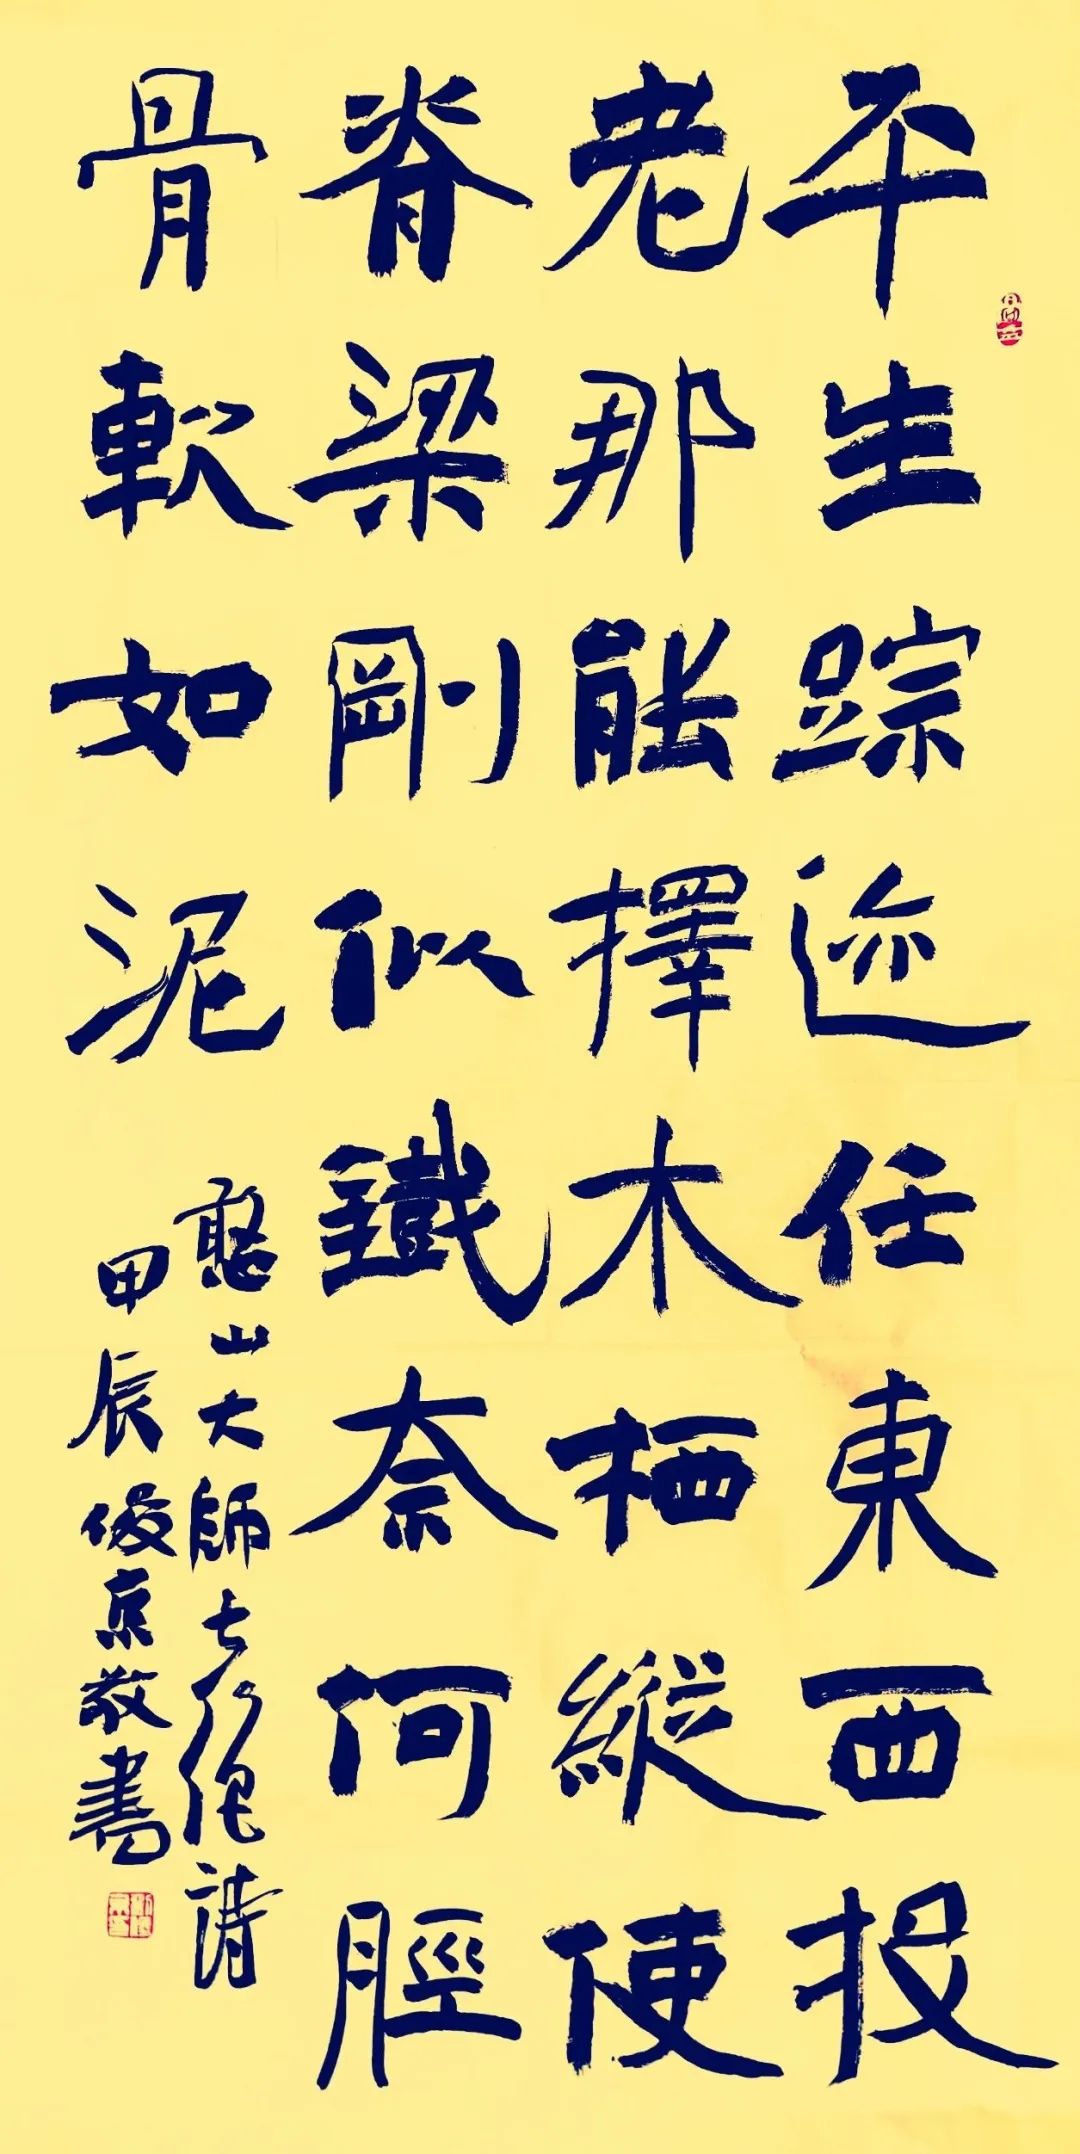 平生踪迹任東西投
老那能擇木栖縱使
脊梁剛似鐵奈何脛
骨軟如泥
憨山大師七絕詩
甲辰俊京敬書